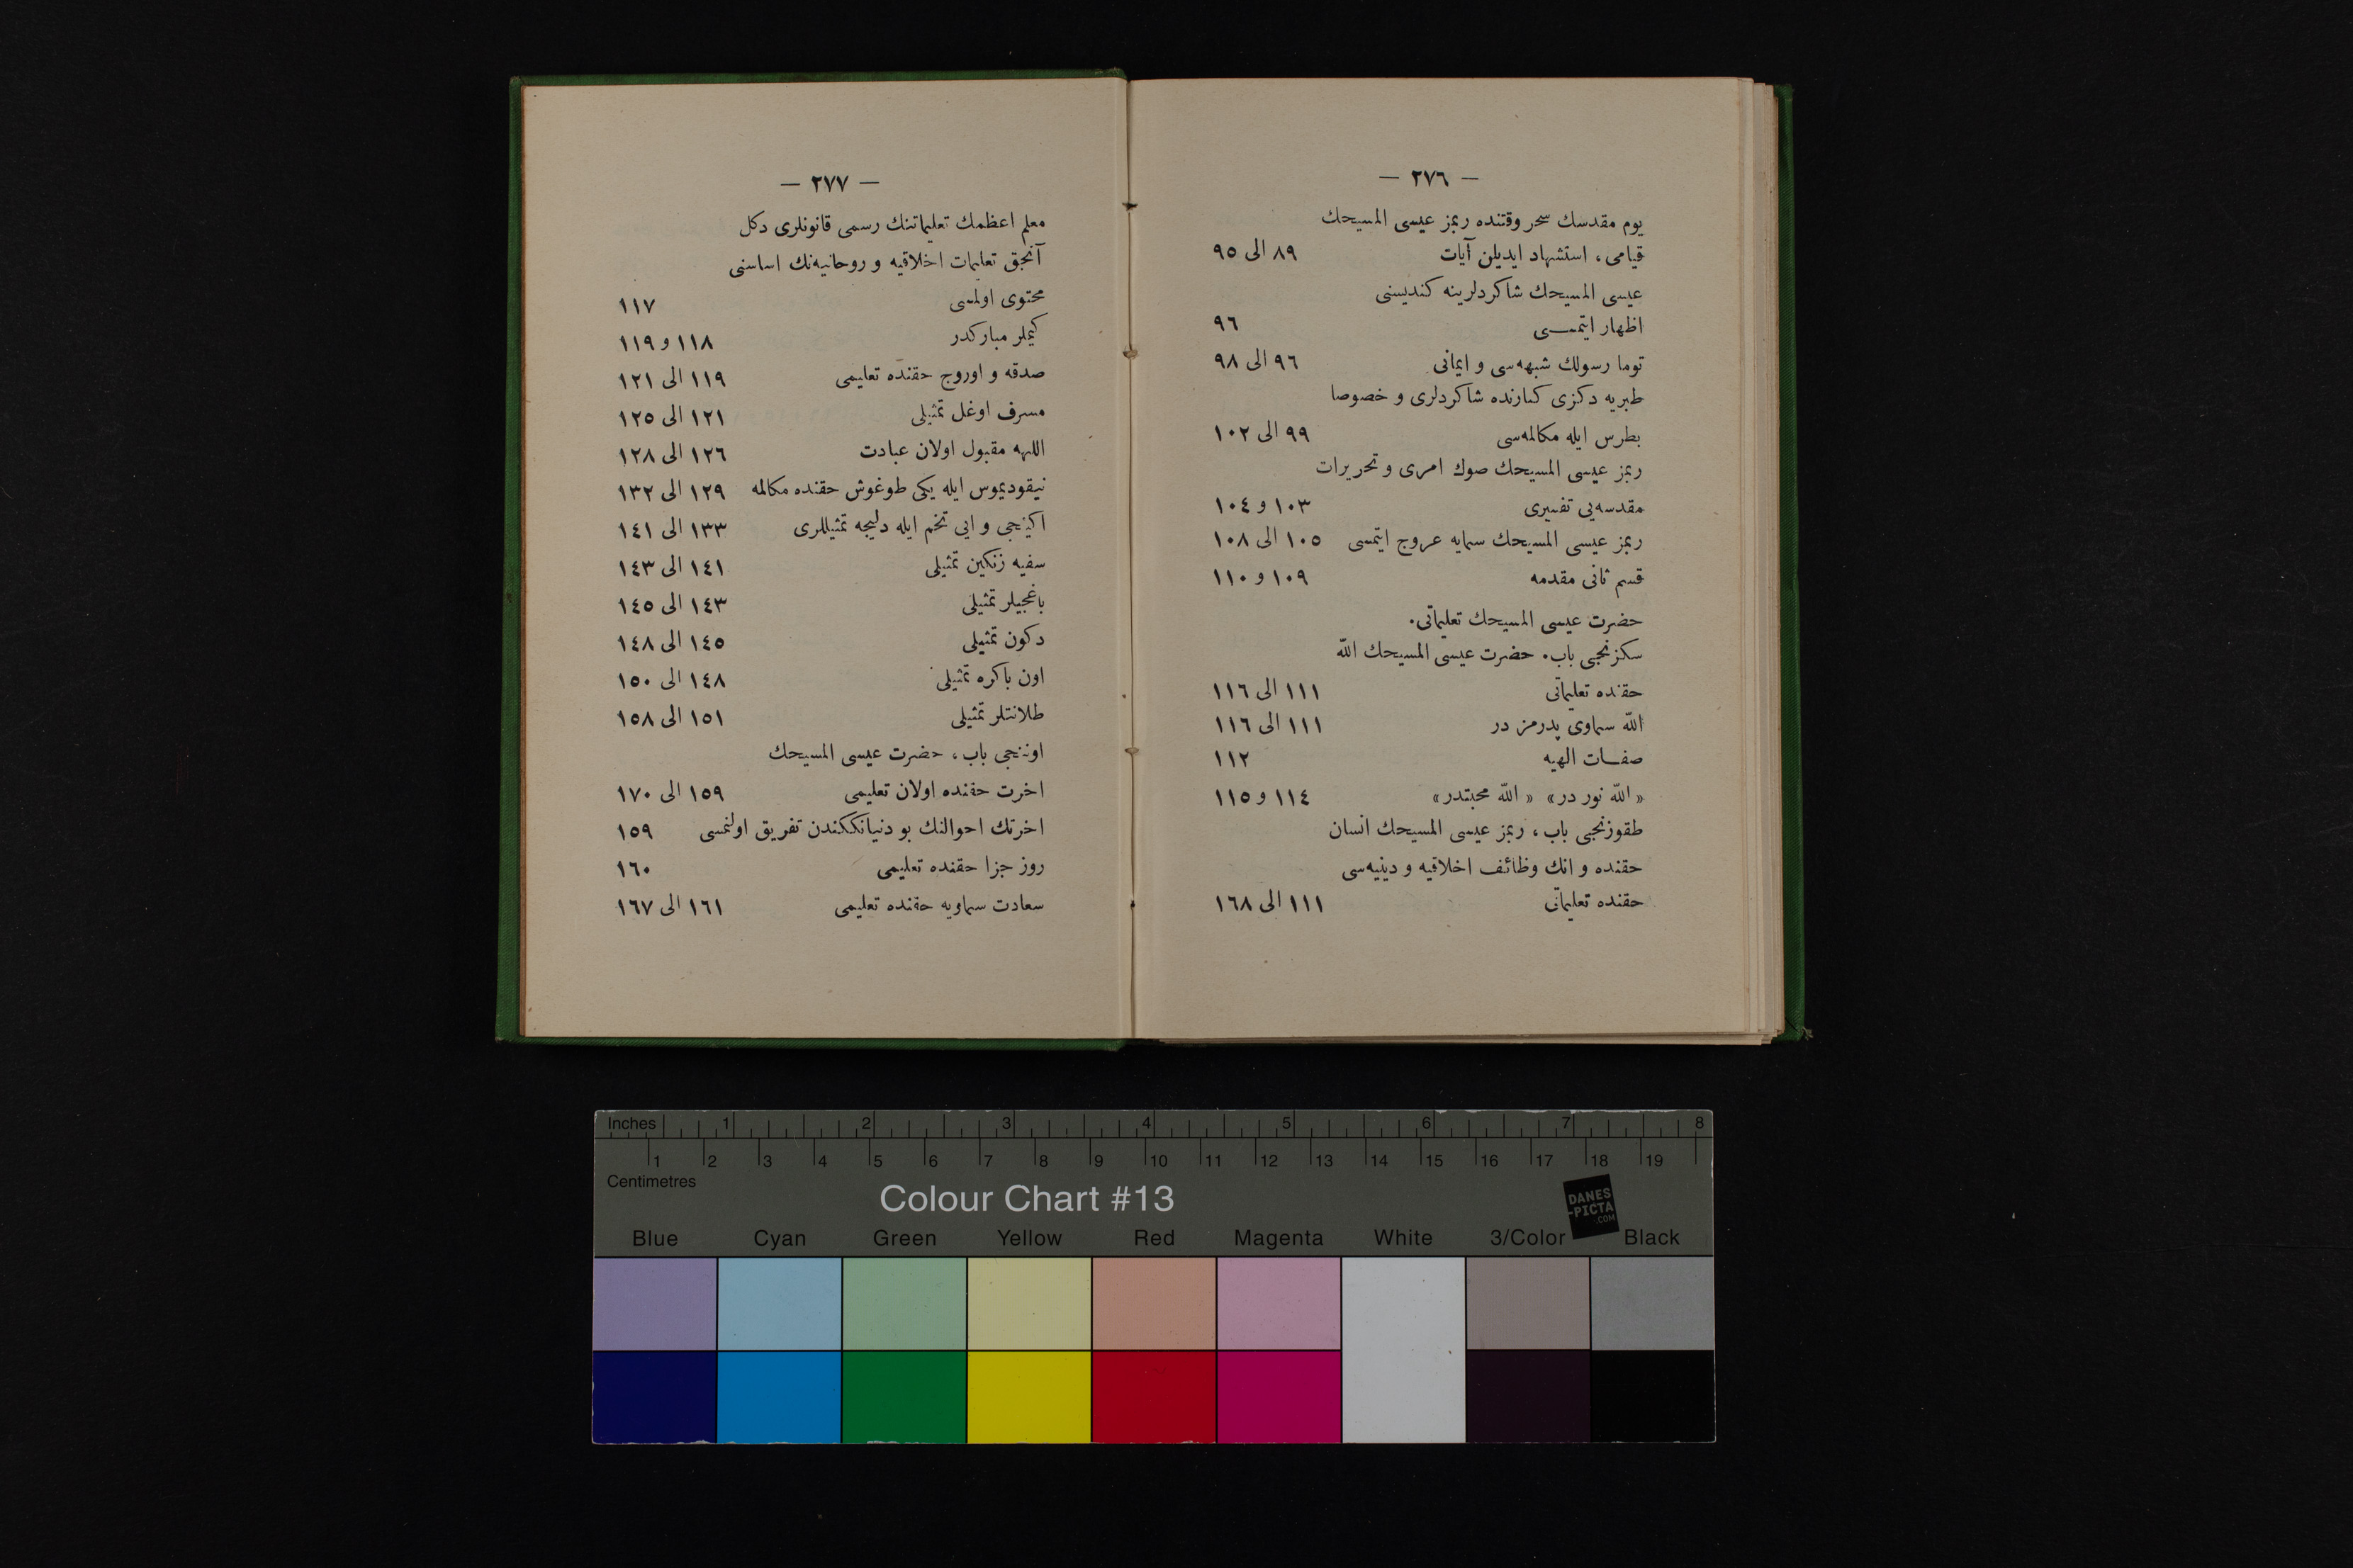 — ٢٧٦ —
يوم مقدسك سحر وقتنده ربمز عيسى المسيحك
قيامى ، استشهاد ايديلن آيات ٨٩ الى ٩٥
عيسى المسيحك شاكردلرينه كنديسنى
اظهار ايتمسى ٩٦
توما رسولك شبهه‌سى و ايمانى ٩٦ الى ٩٨
طبريه دكزى كنارنده شاكردلرى و خصوصا
بطرس ايله مكالمه‌سى ٩٩ الى ١٠٢
ربمز عيسى المسيحك صوك امرى و تحريرات
مقدسه‌يى تفسيرى ١٠٣ و ١٠٤
ربمز عيسى المسيحك سمايه عروج ايتمسى ١٠٥ الى ١٠٨
قسم ثانى مقدمه ١٠٩ و ١١٠
حضرت عيسى المسيحك تعليماتى.
سكزنجى باب. حضرت عيسى المسيحك اللّه
حقنده تعليماتى ١١١ الى ١١٦
اللّه سماوى پدرمز در ١١١ الى ١١٦
صفات الهيه ١١٢
« اللّه نور در» « اللّه محبتدر» ١١٤ و ١١٥
طقوزنجى باب ، ربمز عيسى المسيحك انسان
حقنده و انك وظائف اخلاقيه و دينيه‌سى
حقنده تعليماتى ١١١ الى ١٦٨
— ٢٧٧ —
معلم اعظمك تعليماتنك رسمى قانونلرى دكل
آنجق تعليمات اخلاقيه و روحانيه‌نك اساسنى
محتوى اولمسى ١١٧
كيملر مباركدر ١١٨ و ١١٩
صدقه و اوروج حقنده تعليمى ١١٩ الى ١٢١
مسرف اوغل تمثيلى ١٢١ الى ١٢٥
اللهه مقبول اولان عبادت ١٢٦ الى ١٢٨
نيقوديموس ايله يكى طوغوش حقنده مكالمه ١٢٩ الى ١٣٢
اكينجى و ايى تخم ايله دليجه تمثيللرى ١٣٣ الى ١٤١
سفيه زنكين تمثيلى ١٤١ الى ١٤٣
باغجيلر تمثيلى ١٤٣ الى ١٤٥
دكون تمثيلى ١٤٥ الى ١٤٨
اون باكره تمثيلى ١٤٨ الى ١٥٠
طلانتلر تمثيلى ١٥١ الى ١٥٨
اوننجى باب ، حضرت عيسى المسيحك
اخرت حقنده اولان تعليمى ١٥٩ الى ١٧٠
اخرتك احوالنك بو دنيانككندن تفريق اولنمسى ١٥٩
روز جزا حقنده تعليمى ١٦٠
سعادت سماويه حقنده تعليمى ١٦١ الى ١٦٧
Inches 1 2 3 4 5 6 7 8
1 2 3 4 5 6 7 8 9 10 11 12 13 14 15 16 17 18 19
Centimetres
Colour Chart #13
DANES
-PICTA
.COM
Blue Cyan Green Yellow Red Magenta White 3/Color Black